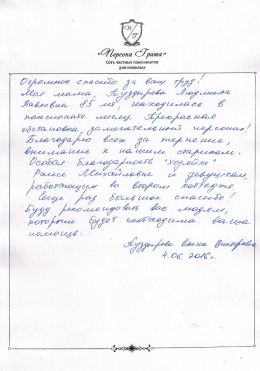 «Персона Грата»
Сеть частных пансионатов
для пожилых
Огромное спасибо за ваш труд!
Моя мама, Людмила
Павловна 85 лет находилась в
пансионате месяц. Прекрасная
обстановка, замечательный персонал!
Благодарю всех за терпение,
внимание к нашим старикам.
Особая благодарность "хозяйке"
Раисе Михайловне и девушкам,
работающим во втором коттедже
Еще раз большое спасибо!
Буду рекомендовать вас людям,
которым будет необходима ваша
помощь.
Елена Викторовна
4.06.2016г.